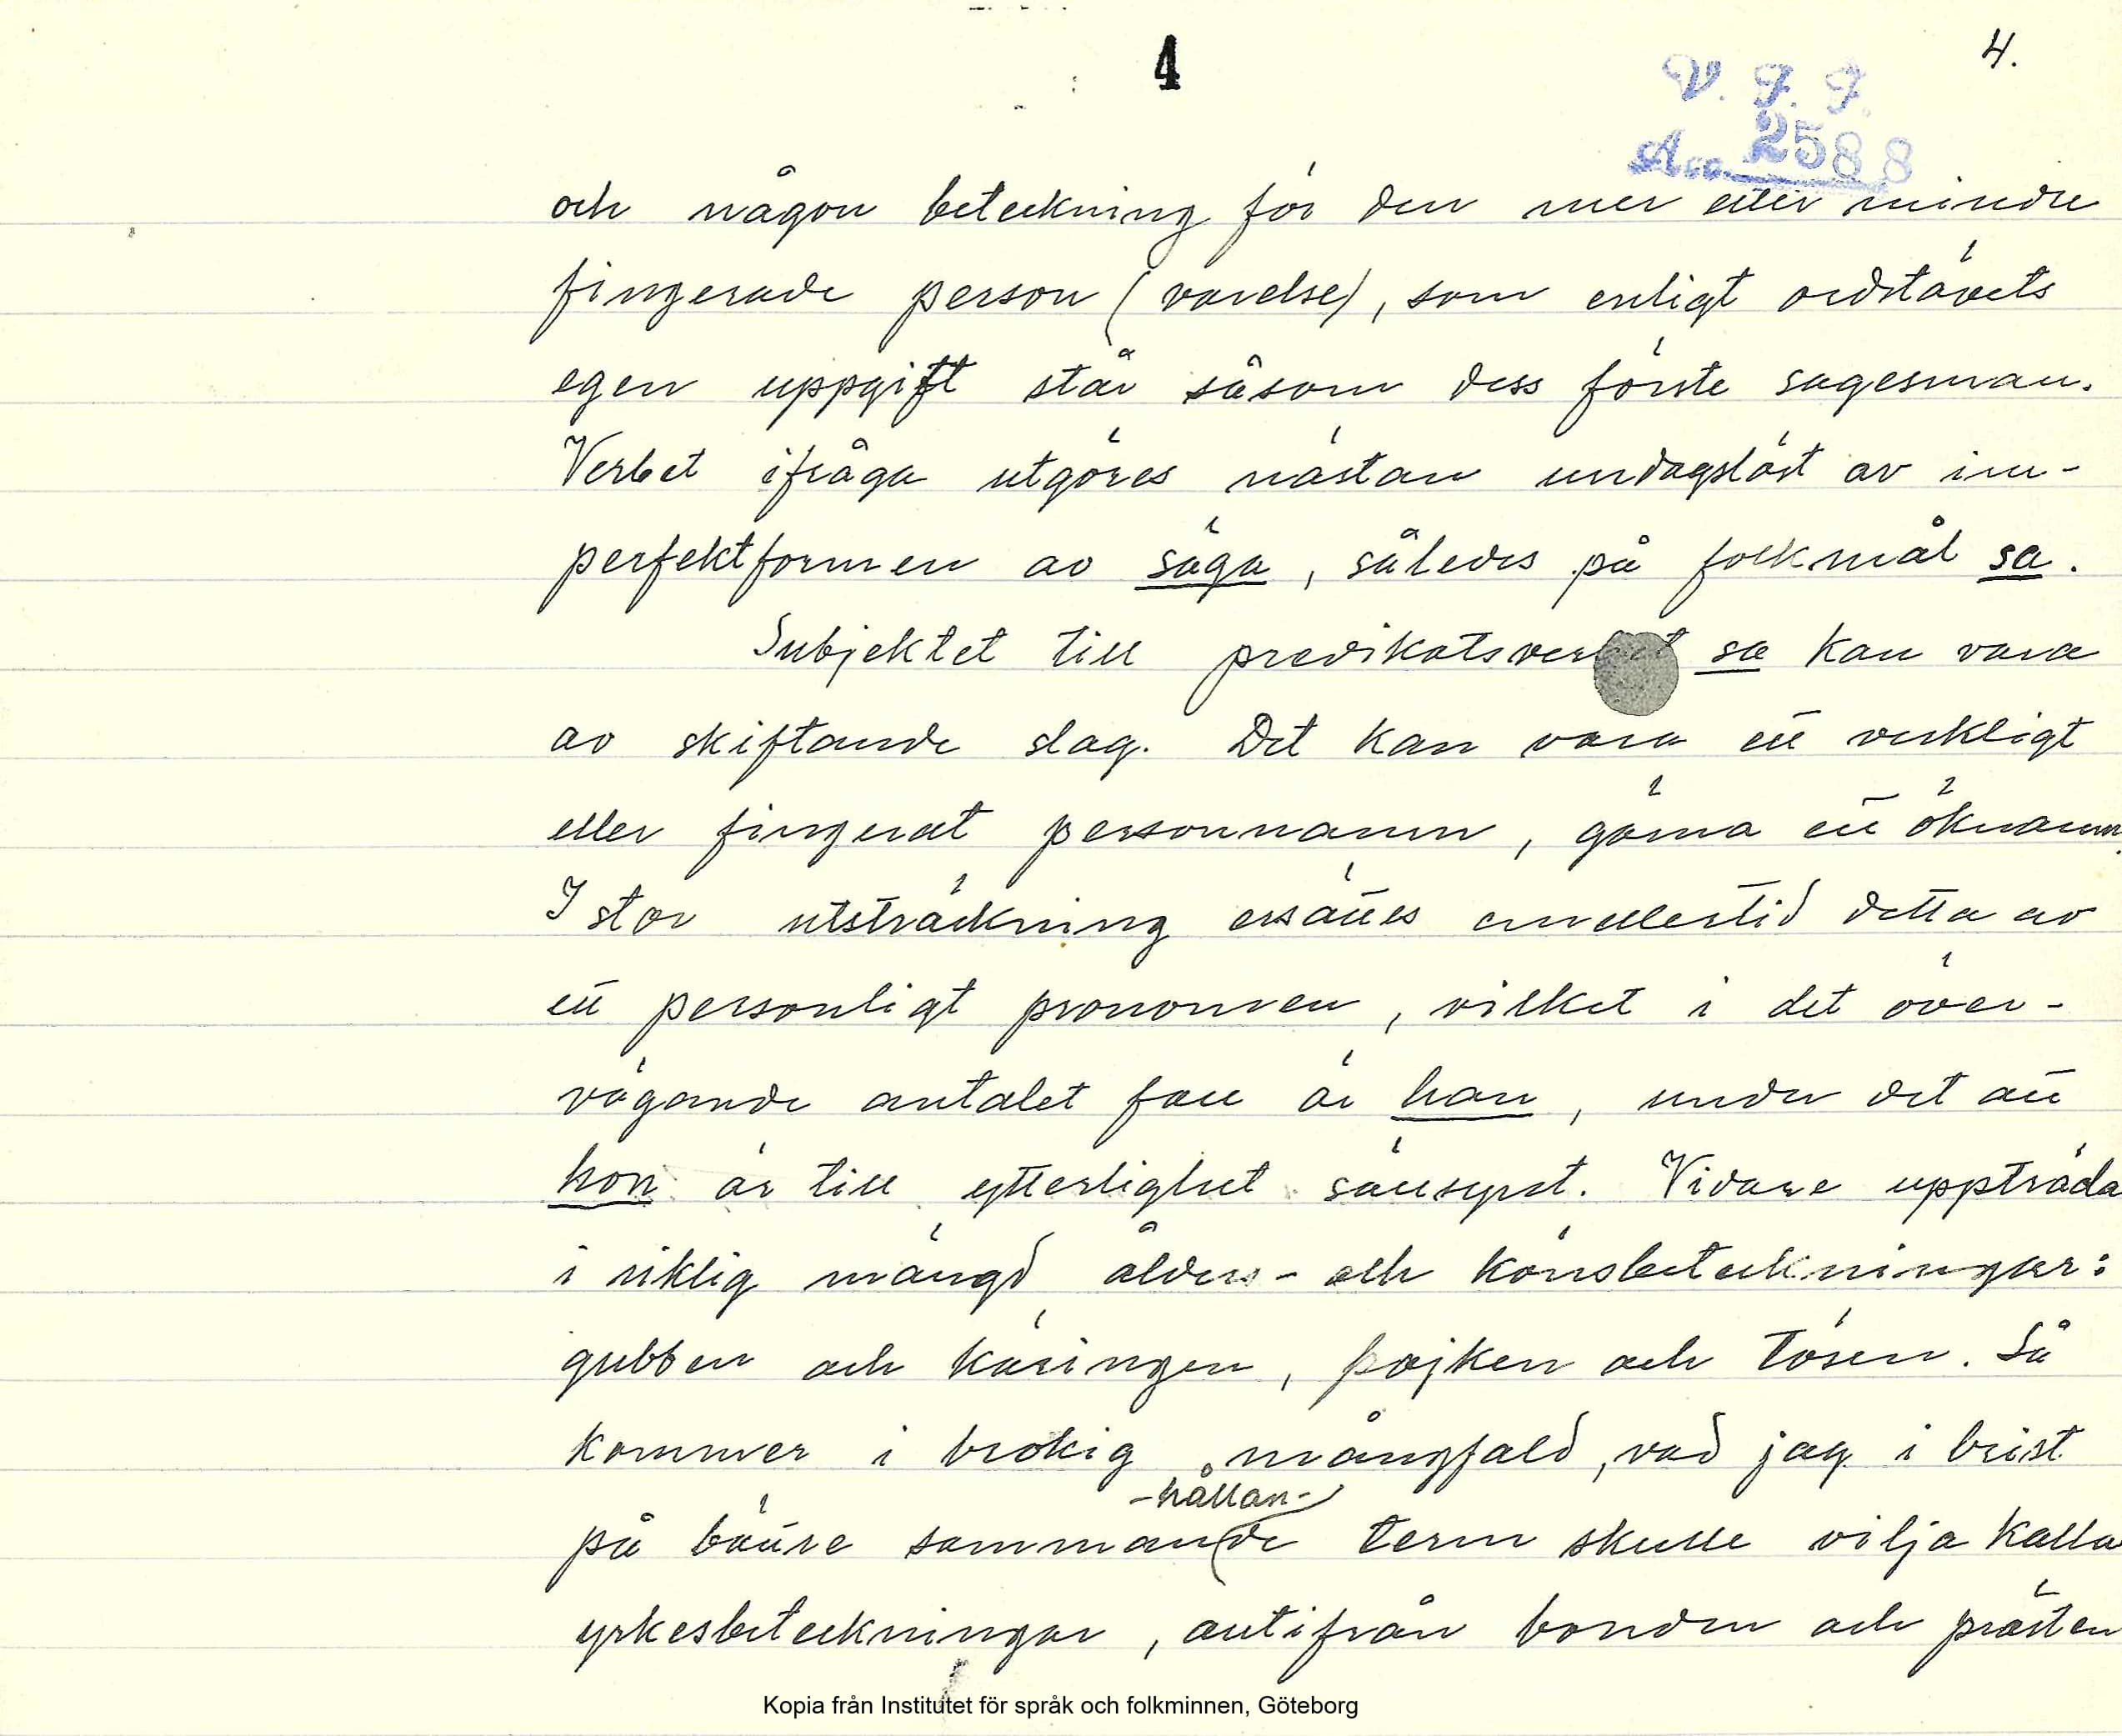 1
4.
V. F. F.
Acc. 2588
och någon beteckning för den mer eller mindre
fingerade person (varelse), som enligt ordstävets
egen uppgift står såsom dess förste sagesman.
Verbet ifråga utgöres nästan undagslöst av im-
perfektformen av säga, således på folkmål sa.
Subjektet till predikatsverbet sa kan vara
av skiftande slag. Det kan vara ett verkligt
eller fingerat personnamn, gärna ett öknamn.
I stor utsträckning ersättes emellertid detta av
ett personligt pronomen, vilket i det över-
vägande antalet fall är han, under det att
hon är till ytterlighet sällsynt. Vidare uppträda
i riklig mängd ålders- och könsbeteckningar:
gubben och käringen, pojken och tösen. Så
kommer i brokig mångfald, vad jag i brist
-hållan-
på bättre sammande term skulle vilja kalla
yrkesbeteckningar, antifrån bonden och prästen
Kopia från Institutet för språk och folkminnen, Göteborg